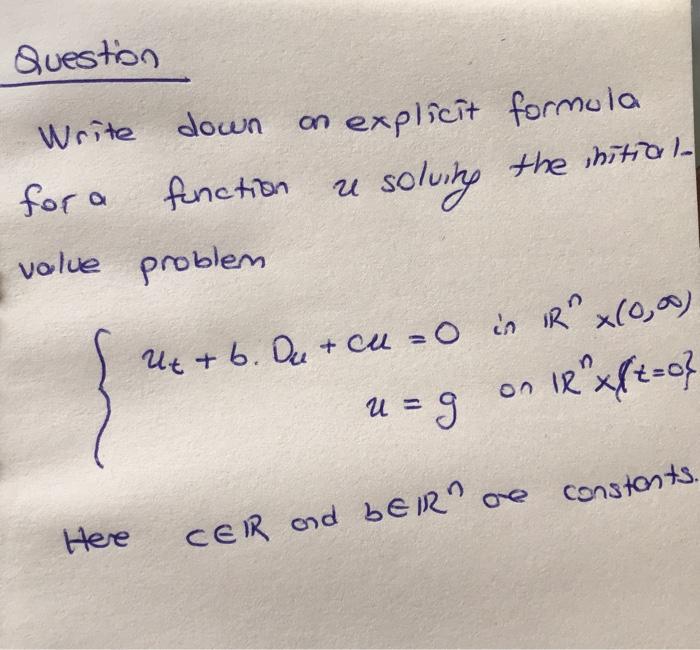 Question
Write down an explicit formula
for a function u solving the initial-
value problem
{ u_t + b. Du + cu = 0 in ℝⁿ x(0,∞)
u = g on ℝⁿx{t=0}
Here c∈ℝ and b∈ℝⁿ are constants.